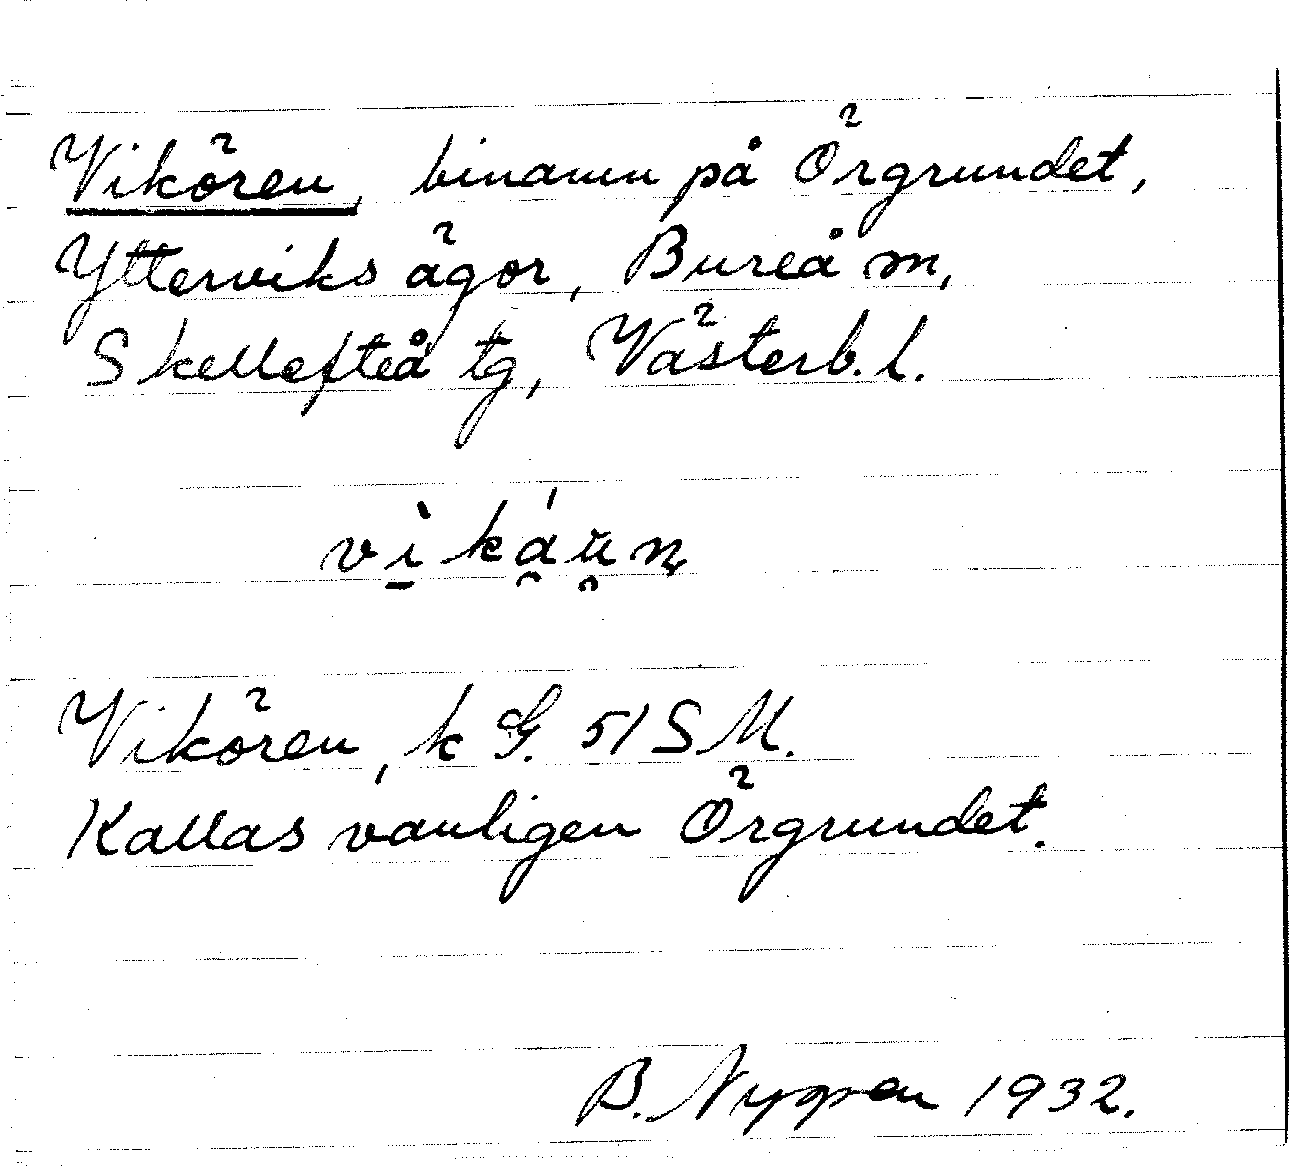 Vikören, binamn på Örgrundet,
Ytterviks ägor, Bureå m,
Skellefteå tg, Västerb. l.
Vikören, k G. 51 S M.
Kallas vanligen Örgrundet.
B. Nygren 1932.